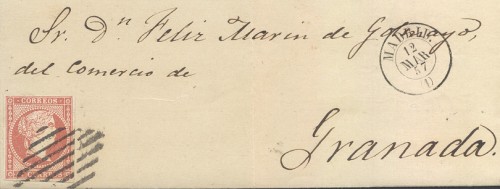 Sr. Dn. Feliz Marin de
del Comercio de
Granada.
MADRID
12
MAR
57
(1)
CORREOS